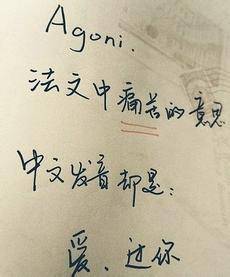 Agoni.
法文中痛苦的意思
中文发音却是：
爱、过你